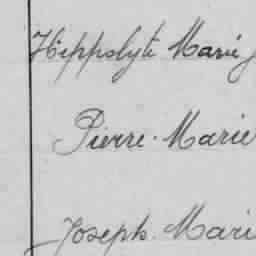 Hippolyte Marie
Pierre-Marie
Joseph Mari